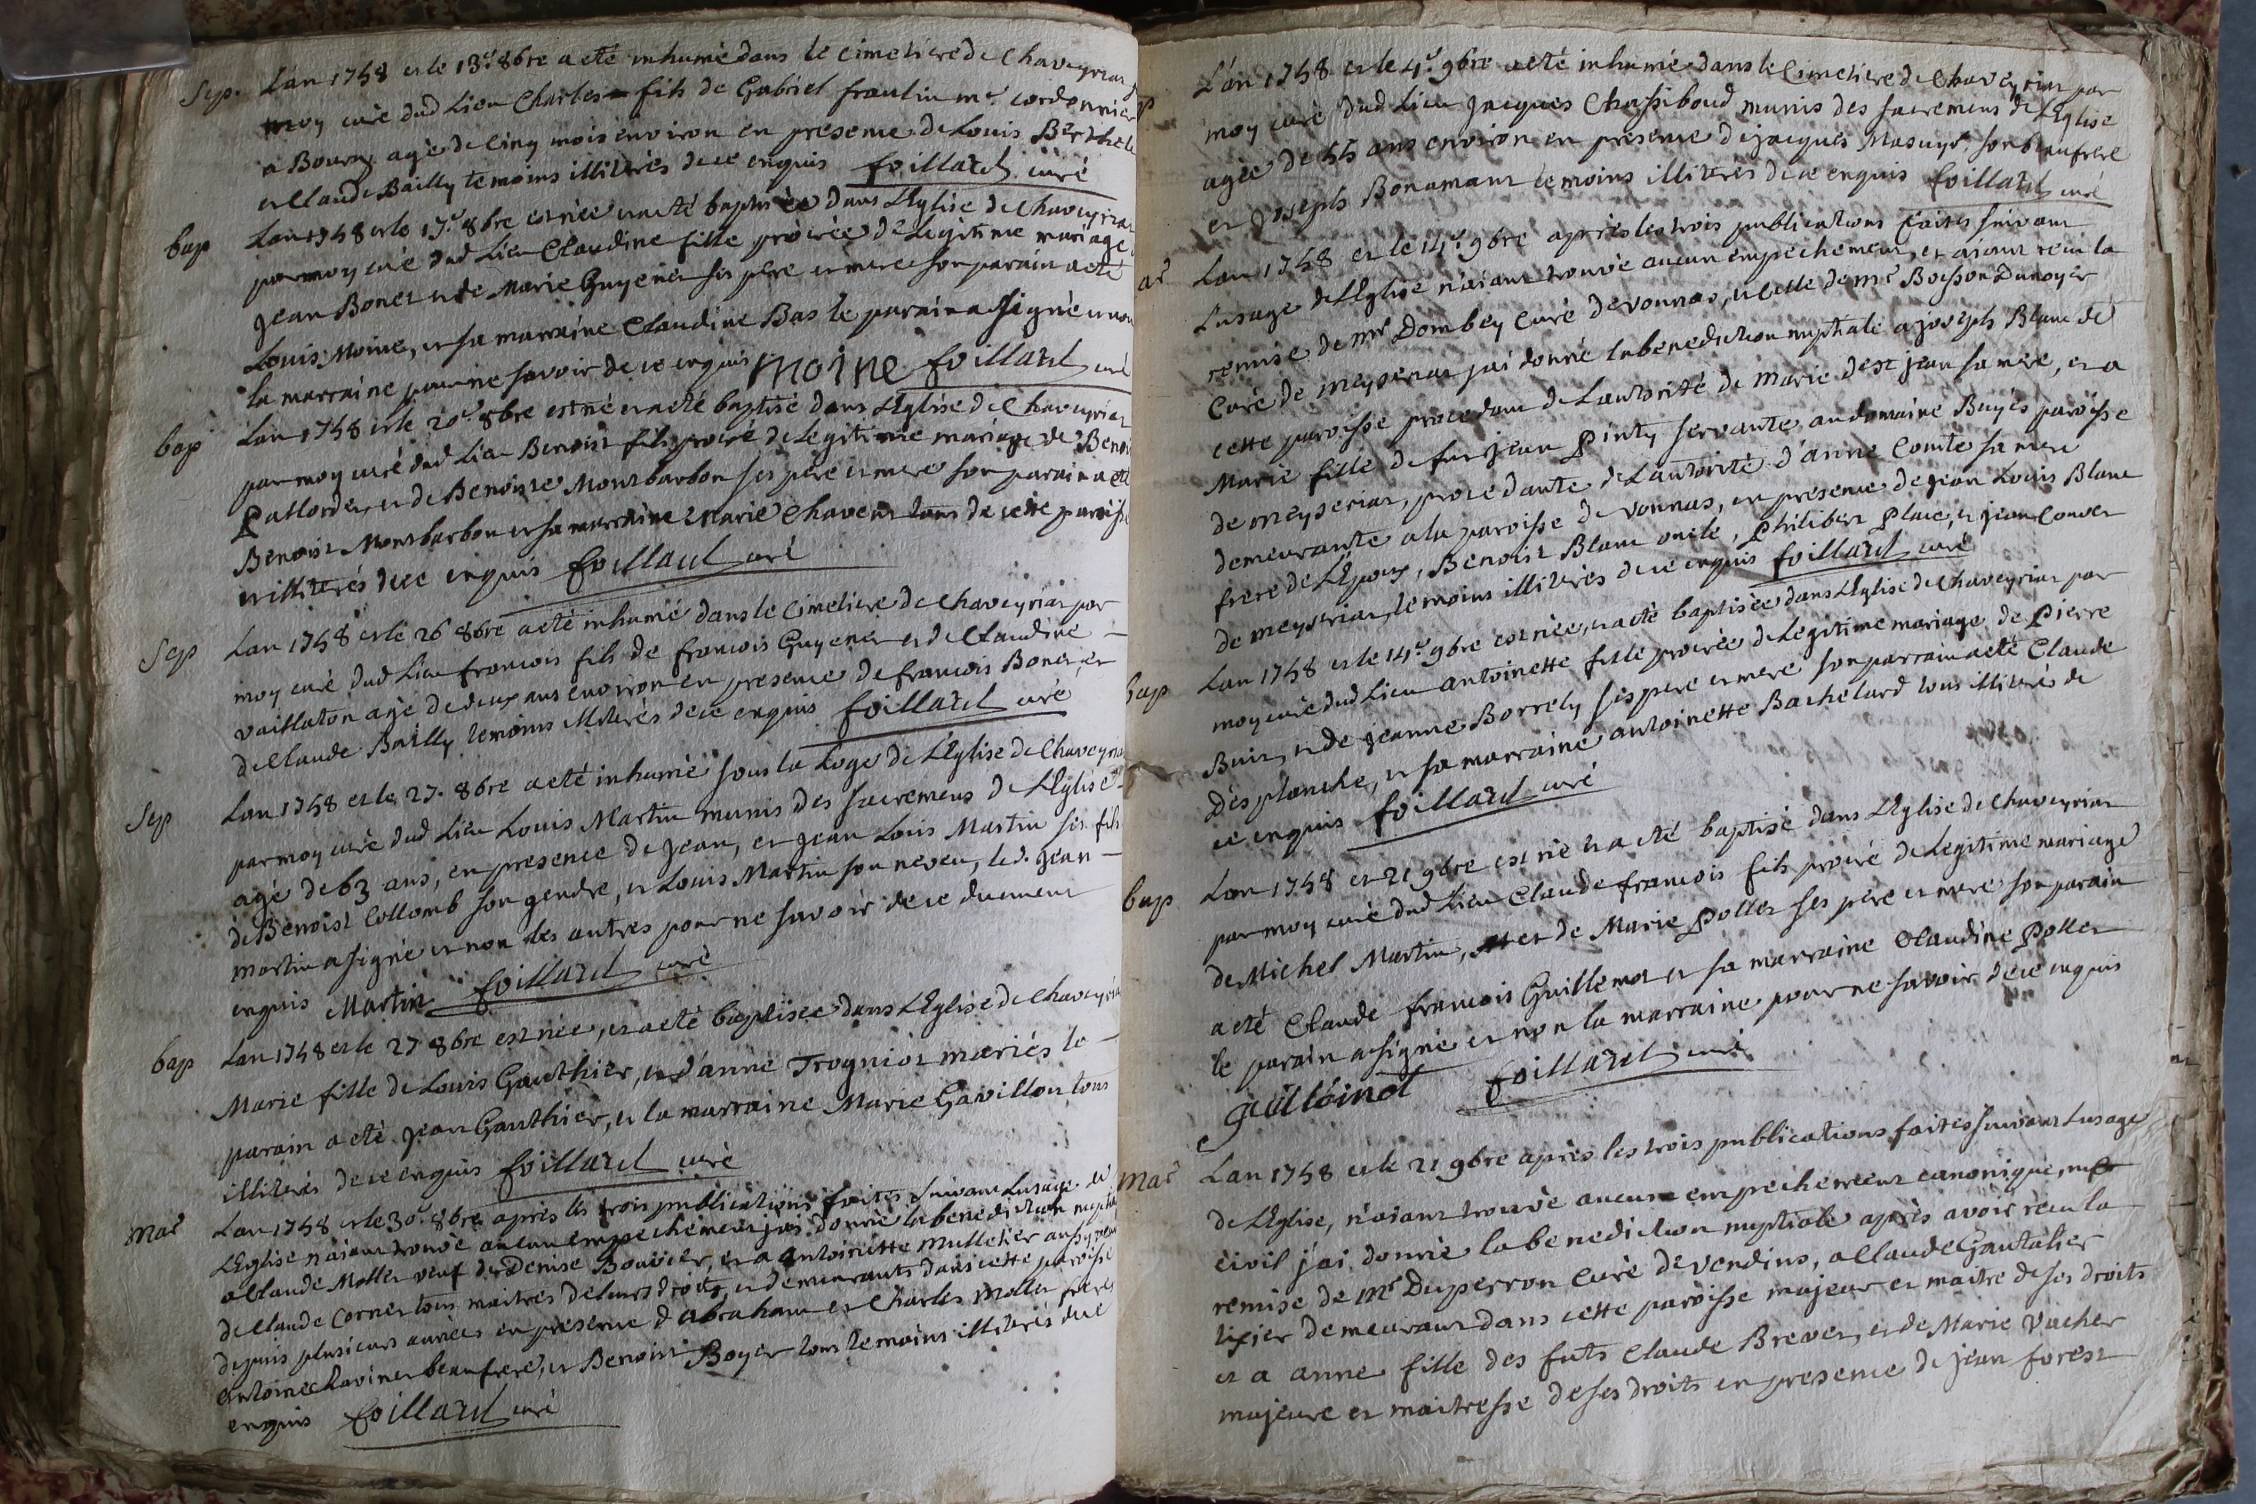 Sep. Lan 1758 et le 13.e 8bre a eté inhumé dans le cimetiere de Chaveyriat
moy curé dud Lieu Charles fils de Gabriel fraulin mr. cordonnier
a Bourg agé de Cinq mois environ en presence de Louis Berthele
et Claude Bailly temoins illiterés de ce enquis foillard curé
bap Lan 1758 et le 17.e 8bre est née et a eté baptisée dans LEglise de Chaveyriat
par moy curé dud Lieu Claudine fille procréée de Legitime mariage
Jean Bonet et de Marie Guyenet ses pere et mere son parain a eté
Louis Moine, et sa marraine Claudine Bas le parain a signé et non
la marraine pour ne savoir de ce enquis moine foillard curé
bap Lan 1758 et le 20.e 8bre est né et a eté baptisé dans LEglise de Chaveyriat
par moy curé dud Lieu Benoist fils procréé de Legitime mariage de Benoi
Pallordet, et de Benoiste Montbarbon ses pere et mere son parain a eté
Benoist Montbarbon et sa marraine Marie Chavent tous de cette paroisse
et illiterés de ce enquis foillard curé
Sep Lan 1758 et le 26 8bre a eté inhumé dans le Cimetiere de Chaveyriat par
moy curé dud Lieu francois fils de francois Guyenet et de Claudine
vaillaton agé de deux ans environ en presence de francois Bonet, et
de Claude Bailly temoins illiterés de ce enquis foillard curé
Sep Lan 1758 et le 27. 8bre a eté inhumé sous la Loge de LEglise de Chaveyria
par moy curé dud Lieu Louis Martin munis des sacremens de LEglise
agé de 63 ans, en presence de Jean, et Jean Louis Martin ses fils
de Benoist Collomb son gendre, et Louis Martin son neveu, led. Jean
Martin a signé et non les autres pour ne savoir de ce duement
enquis Martin foillard curé
bap Lan 1758 et le 27 8bre est née, et a eté baptisée dans LEglise de Chaveyria
Marie fille de Louis Gauthier, et d'anne Trogniot mariés le
parain a eté Jean Gauthier, et la marraine Marie Gavillon tous
illiterés de ce enquis foillard curé
Mar Lan 1758 et le 30.e 8bre après les trois publications faites suivant Lusage de
LEglise n'aiant trouvé aucun empechement j'ai donné la benediction nuptia
a Claude Mollet veuf de Denise Bouvier, et a Antoinette Mulletier aussy veuve
de Claude Cornet tous maitres de leurs droits, et demeurants dans cette paroisse
depuis plusieurs années en presence d'abraham et Charles Mollet freres
antoine Chavinet beaufrere, et Benoist Boyer tous temoins illiterés de ce
enquis foillard curé
p Lan 1758 et le 4.e 9bre a eté inhumé dans le Cimetiere de Chaveyriat par
moy curé dud Lieu Jacques Chassiboud munis des sacremens de LEglise
agée de 55 ans environ en presence de jacques Masuyr son beaufrere
et Joseph Bonamant temoins illiterés de ce enquis foillard curé
ar Lan 1758 et le 14.e 9bre après les trois publications faites suivant
Lusage de LEglise n'aiant trouvé aucun empechement, et aiant recu la
remise de mr Dombey Curé de vonnas, et celle de mr Boisson Dunoyer
Curé de meyseriat j'ai donné la benediction nuptiale a joseph Blanc de
cette paroisse procedant de Lautorité de Marie dest jean sa mere, et a
Marie fille de fut jean Pinty servante au domaine Buyes paroisse
de meyseriat, procedante de Lautorité d'anne Comte sa mere
demeurante a la paroisse de vonnas, en presence de jean Louis Blanc
frere de LEpoux, Benoist Blanc oncle, Philibert Place, et jean Convert
de meyseriat, temoins illiterés de ce enquis foillard curé
bap Lan 1758 et le 14.e 9bre est née, et a eté baptisée dans LEglise de Chaveyriat par
moy curé dud Lieu antoinette fille procréée de Legitime mariage de Pierre
Buir, et de jeanne Borrely ses pere et mere son parrain a eté Claude
Desplanche, et sa marraine antoinette Bachelard tous illiterés de
ce enquis foillard curé
bap Lan 1758 et 21 9bre est né et a eté baptisé dans LEglise de Chaveyriat
par moy curé dud Lieu Claude francois fils procréé de Legitime mariage
de Michel Martin, et de Marie Pollet ses pere et mere son parain
a eté Claude francois Guillemot et sa marraine Claudine Pollet
le parain a signé et non la marraine pour ne savoir de ce enquis
guilloinot foillard curé
Mar Lan 1758 et le 21 9bre après les trois publications faites suivant Lusage
de LEglise, n'aiant trouvé aucun empechement canonique, ni
civil j'ai donné la benediction nuptiale après avoir recu la
remise de mr Duperron Curé de vendins, a Claude Gautalier
tixier demeurant dans cette paroisse majeur et maitre de ses droits
et a anne fille des futs Claude Brevet, et de Marie Vucher
majeure et maitresse de ses droits en presence de jean forest